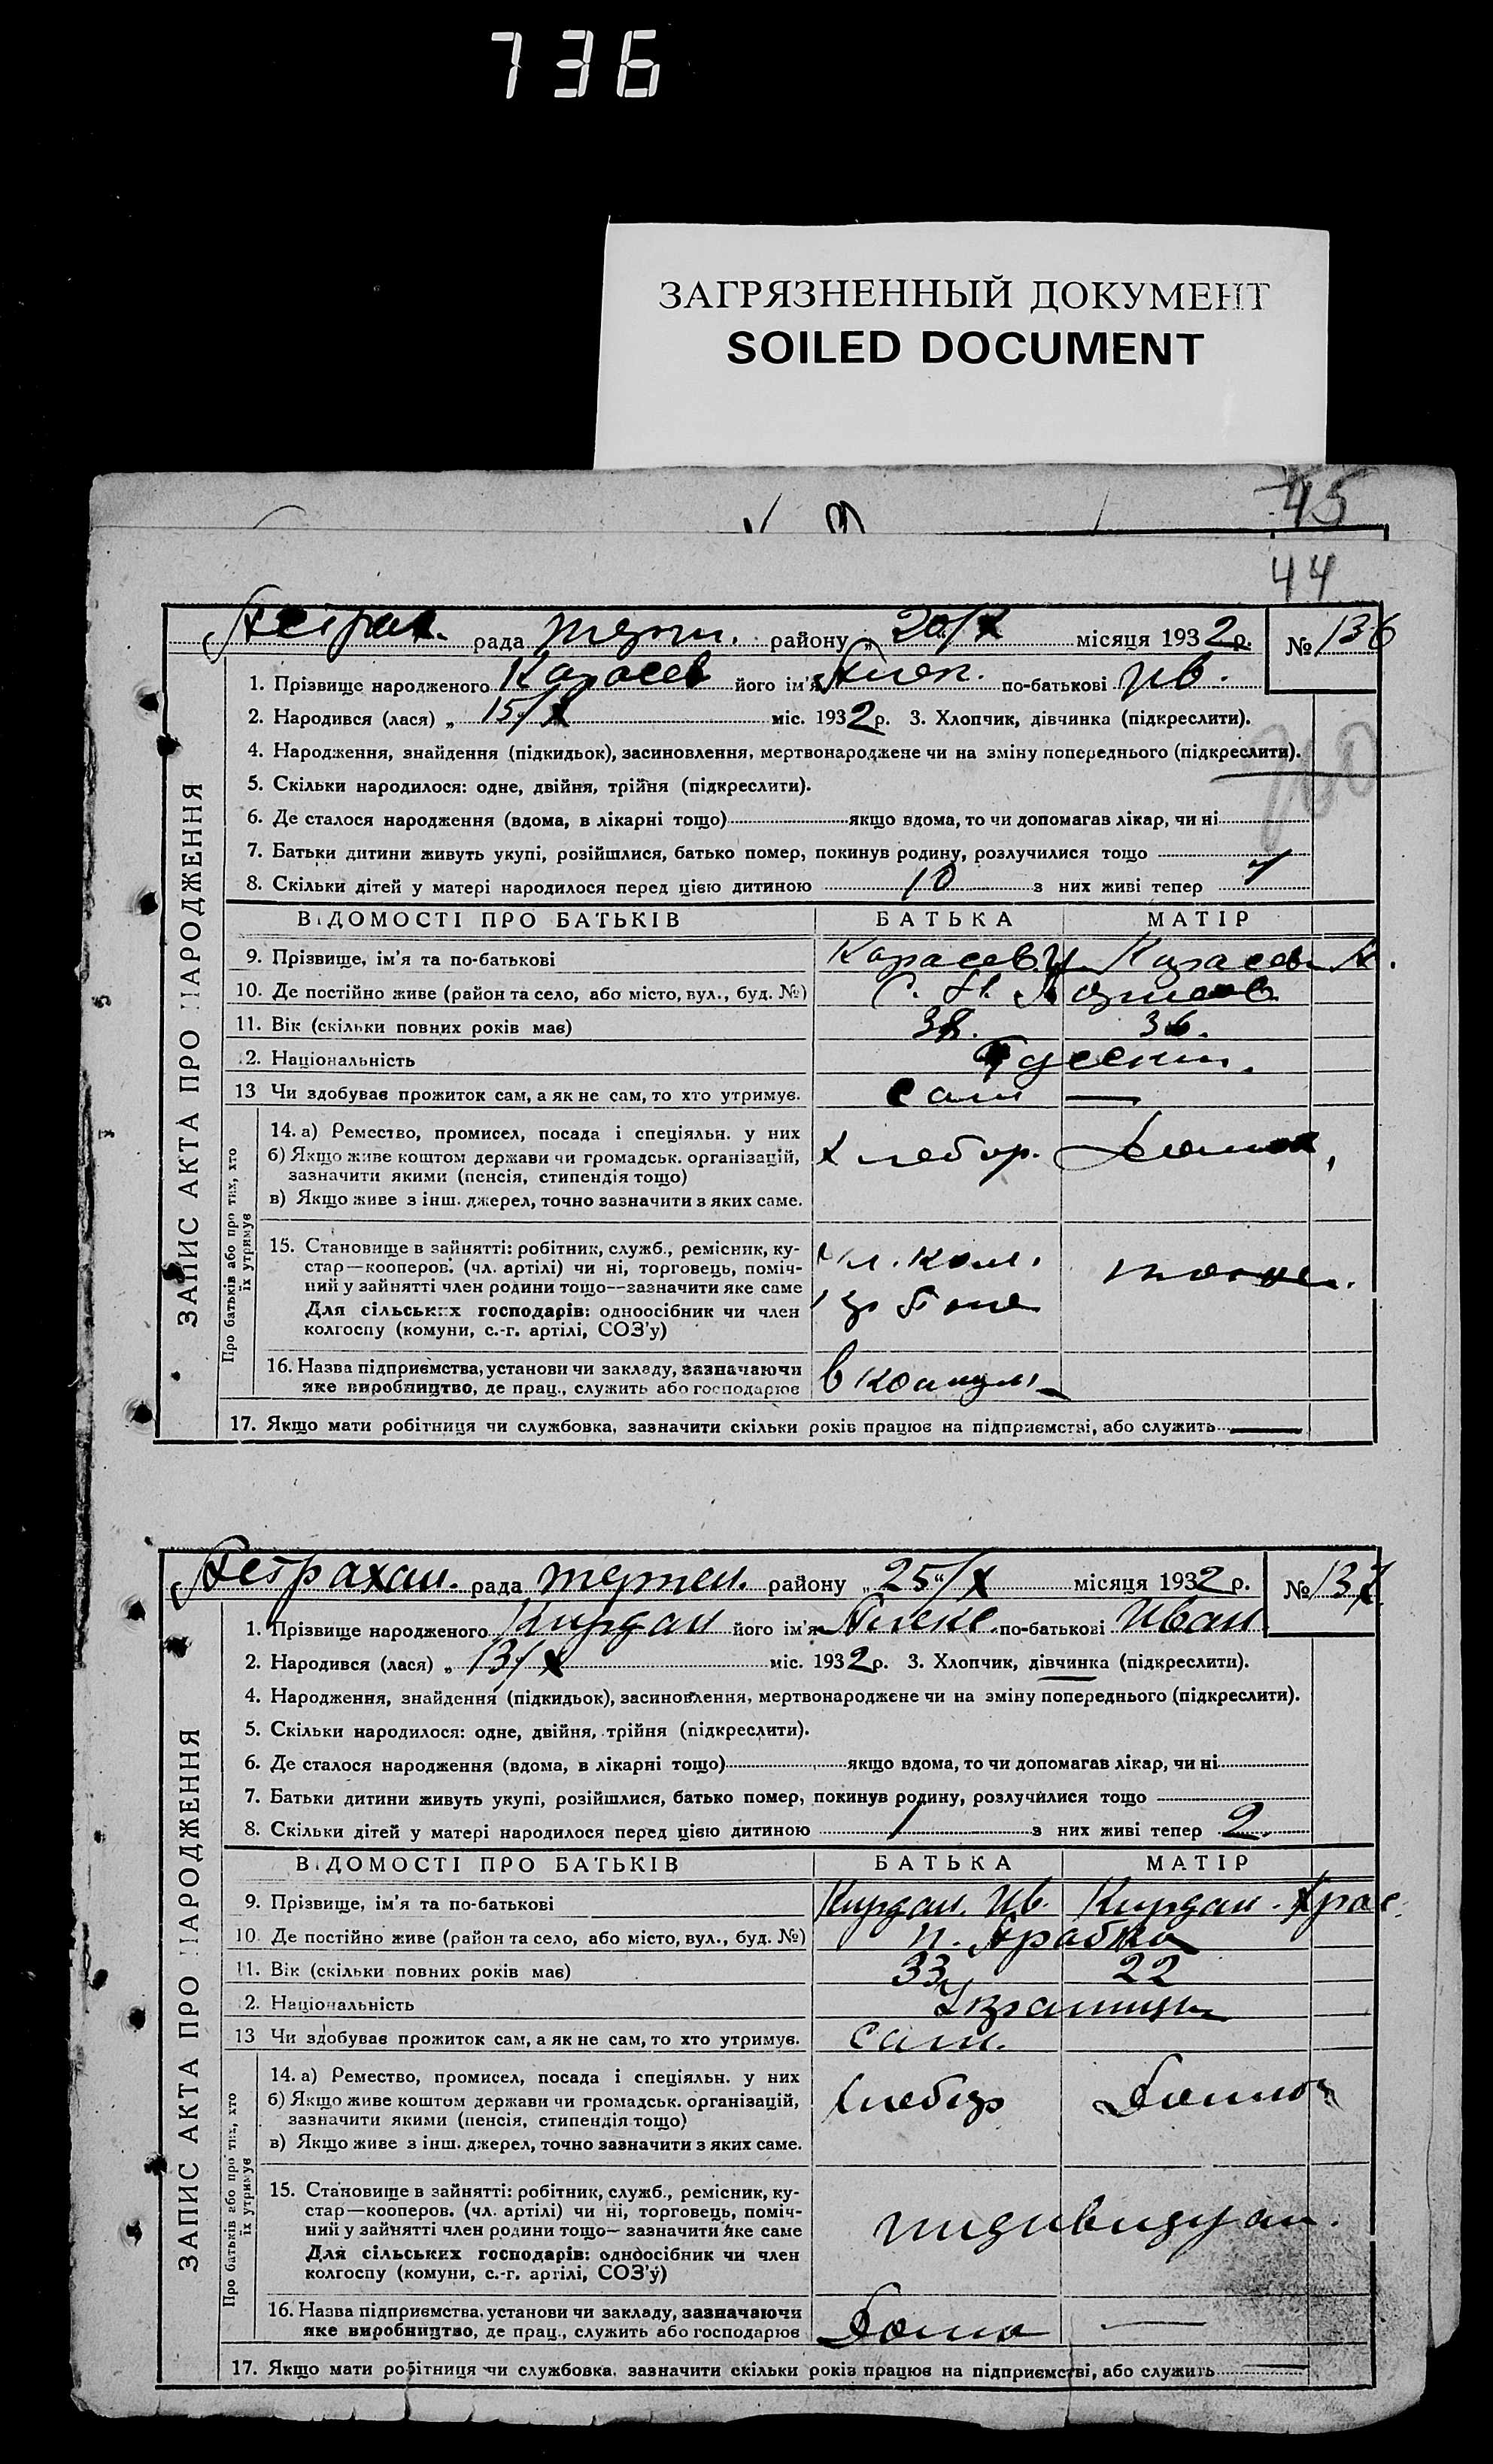 736
ЗАГРЯЗНЕННЫЙ ДОКУМЕНТ
SOILED DOCUMENT
45
44
рада району „ 20/X місяця 1932 р. № 136
1. Прізвище народженого Карасев його ім'я Алек. по-батькові Ив.
2. Народився (лася) „ 15/X міс. 1932 р. 3. Хлопчик, дівчинка (підкреслити).
4. Народження, знайдення (підкидьок), засиновлення, мертвонароджене чи на зміну попереднього (підкреслити).
5. Скільки народилося: одне, двійня, трійня (підкреслити).
6. Де сталося народження (вдома, в лікарні тощо) якщо вдома, то чи допомагав лікар, чи ні
7. Батьки дитини живуть укупі, розійшлися, батько помер, покинув родину, розлучилися тощо
8. Скільки дітей у матері народилося перед цією дитиною 10 з них живі тепер
ВІДОМОСТІ ПРО БАТЬКІВ БАТЬКА МАТІР
9. Прізвище, ім'я та по-батькові Карасев И Карасев
10. Де постійно живе (район та село, або місто, вул., буд. №)
11. Вік (скільки повних років має) 38. 36.
12. Національність
13 Чи здобуває прожиток сам, а як не сам, то хто утримує. Сам —
14. а) Ремество, промисел, посада і спеціяльн. у них
б) Якщо живе коштом держави чи громадськ. організацій,
зазначити якими (пенсія, стипендія тощо)
в) Якщо живе з інш. джерел, точно зазначити з яких саме.
Хлебор. Домох
15. Становище в зайнятті: робітник, служб., ремісник, ку-
стар—кооперов. (чл. артілі) чи ні, торговець, поміч-
ний у зайнятті член родини тощо—зазначити яке саме
Для сільських господарів: одноосібник чи член
колгоспу (комуни, с.-г. артілі, СОЗ'у)
чл. кол.
16. Назва підприємства, установи чи закладу, зазначаючи
яке виробництво, де прац., служить або господарює
17. Якщо мати робітниця чи службовка, зазначити скільки років працює на підприємстві, або служить —
ЗАПИС АКТА ПРО НАРОДЖЕННЯ
Про батьків або про тих, хто
їх утримує
Астрахан. рада району „ 25/X місяця 1932 р. № 137
1. Прізвище народженого Кирдан його ім'я Алекс. по-батькові Иван
2. Народився (лася) „ 13/X міс. 1932 р. 3. Хлопчик, дівчинка (підкреслити).
4. Народження, знайдення (підкидьок), засиновлення, мертвонароджене чи на зміну попереднього (підкреслити).
5. Скільки народилося: одне, двійня, трійня (підкреслити).
6. Де сталося народження (вдома, в лікарні тощо) якщо вдома, то чи допомагав лікар, чи ні
7. Батьки дитини живуть укупі, розійшлися, батько помер, покинув родину, розлучилися тощо
8. Скільки дітей у матері народилося перед цією дитиною 1 з них живі тепер 2.
ВІДОМОСТІ ПРО БАТЬКІВ БАТЬКА МАТІР
9. Прізвище, ім'я та по-батькові Кирдан. Ив. Кирдан.
10. Де постійно живе (район та село, або місто, вул., буд. №)
11. Вік (скільки повних років має) 33 22
12. Національність
13 Чи здобуває прожиток сам, а як не сам, то хто утримує. Сам.
14. а) Ремество, промисел, посада і спеціяльн. у них
б) Якщо живе коштом держави чи громадськ. організацій,
зазначити якими (пенсія, стипендія тощо)
в) Якщо живе з інш. джерел, точно зазначити з яких саме.
15. Становище в зайнятті: робітник, служб., ремісник, ку-
стар—кооперов. (чл. артілі) чи ні, торговець, поміч-
ний у зайнятті член родини тощо—зазначити яке саме
Для сільських господарів: одноосібник чи член
колгоспу (комуни, с.-г. артілі, СОЗ'у)
индивидуал.
16. Назва підприємства, установи чи закладу, зазначаючи
яке виробництво, де прац., служить або господарює
Дома —
17. Якщо мати робітниця чи службовка, зазначити скільки років працює на підприємстві, або служить —
ЗАПИС АКТА ПРО НАРОДЖЕННЯ
Про батьків або про тих, хто
їх утримує